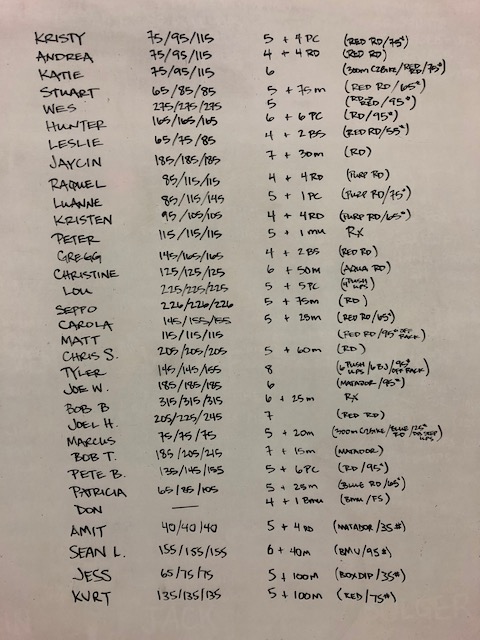 KRISTY 75/95/115 5 + 4 PC (RED RD/75#)
ANDREA 75/95/115 4 + 4 RD (RED RD)
KATIE 75/95/115 6 (300m C2BIKE/RED RD/75#)
STUART 65/85/85 5 + 75m (RED RD/65#)
WES 275/275/275 5 (RED RD/95#)
HUNTER 165/165/165 6 + 6 PC (RD/95#)
LESLIE 65/75/85 4 + 2 BS (RED RD/55#)
JAYCIN 185/185/185 7 + 30m (RD)
RAQUEL 85/115/115 4 + 4 RD (PURP RD)
LUANNE 85/115/145 5 + 1 PC (PURP RD/75#)
KRISTEN 95/105/105 4 + 4 RD (PURP RD/65#)
PETER 115/115/115 5 + 1 MU RX
GREGG 145/165/165 4 + 2 BS (RED RD)
CHRISTINE 125/125/125 6 + 50m (AQUA RD)
LOU 225/225/225 5 + 5 PC (PUSH UPS)
SEPPO 226/226/226 5 + 75m (RD)
CAROLA 145/155/155 5 + 25m (RED RD/65#)
MATT 115/115/115 (RED RD/95# OFF RACK)
CHRIS S. 205/205/205 5 + 60m (RD)
TYLER 145/145/155 8 (6 PUSH UPS/6 BJ/95# OFF RACK)
JOE W. 185/185/185 6 (MATADOR/95#)
BOB B 315/315/315 6 + 25m RX
JOEL H. 205/225/245 7 (RED RD)
MARCUS 75/75/75 5 + 20m (300m C2BIKE/BLUE RD/25# DB STEP UPS)
BOB T. 185/205/215 7 + 15m (MATADOR)
PETE B. 135/145/155 5 + 6 PC (RD/95#)
PATRICIA 65/85/105 5 + 25m (BLUE RD/65#)
DON — 4 + 1 BMU (BMU/FS)
AMIT 40/40/40 5 + 4 RD (MATADOR/35#)
SEAN L. 155/155/155 6 + 40m (BMU/95#)
JESS 65/75/75 5 + 100m (BOX DIP/35#)
KURT 135/135/135 5 + 100m (RED/75#)